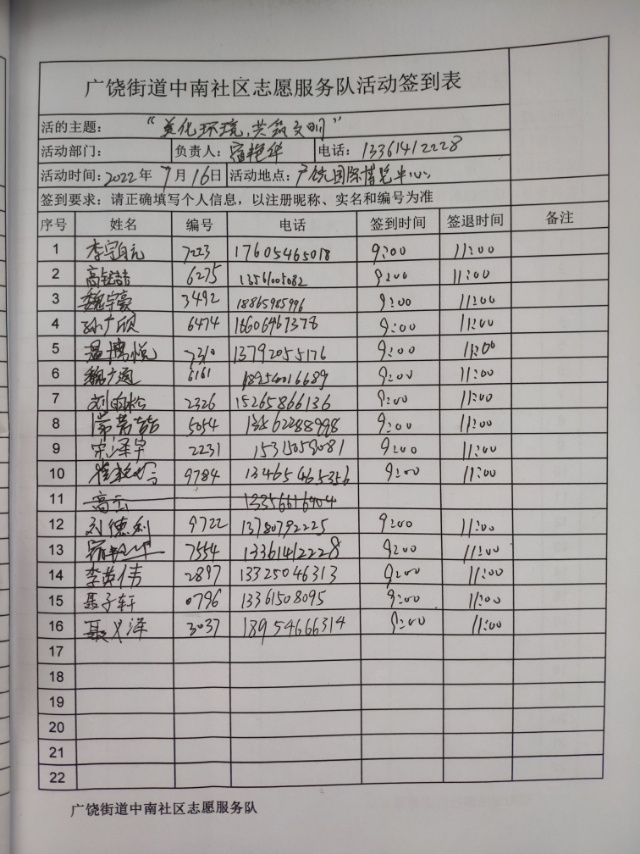 广饶街道中南社区志愿服务队活动签到表
活的主题： “美化环境，共筑文明”
活动部门： 负责人：宿艳华 电话：13361412228
活动时间：2022年7月16日 活动地点：广饶国际博览中心
签到要求：请正确填写个人信息，以注册昵称、实名和编号为准
序号 姓名 编号 电话 签到时间 签退时间 备注
1 7223 17605465018 9:00 11:00
2 6275 13561005082 9:00 11:00
3 3492 18865985996 9:00 11:00
4 孙广欣 6474 16606467378 9:00 11:00
5 温博悦 7310 13792055176 9:00 11:00
6 6161 18954016689 9:00 11:00
7 2326 15265866136 9:00 11:00
8 5054 9:00 11:00
9 宋泽宇 2231 15315058081 9:00 11:00
10 9784 13465465356 9:00 11:00
11 高云 13356616404
12 刘德利 9722 13780792225 9:00 11:00
13 宿艳华 7554 13361412228 9:00 11:00
14 李英伟 2897 13325046313 9:00 11:00
15 聂子轩 0796 13361508095 9:00 11:00
16 聂义泽 3037 18954666314 9:00 11:00
17
18
19
20
21
22
广饶街道中南社区志愿服务队